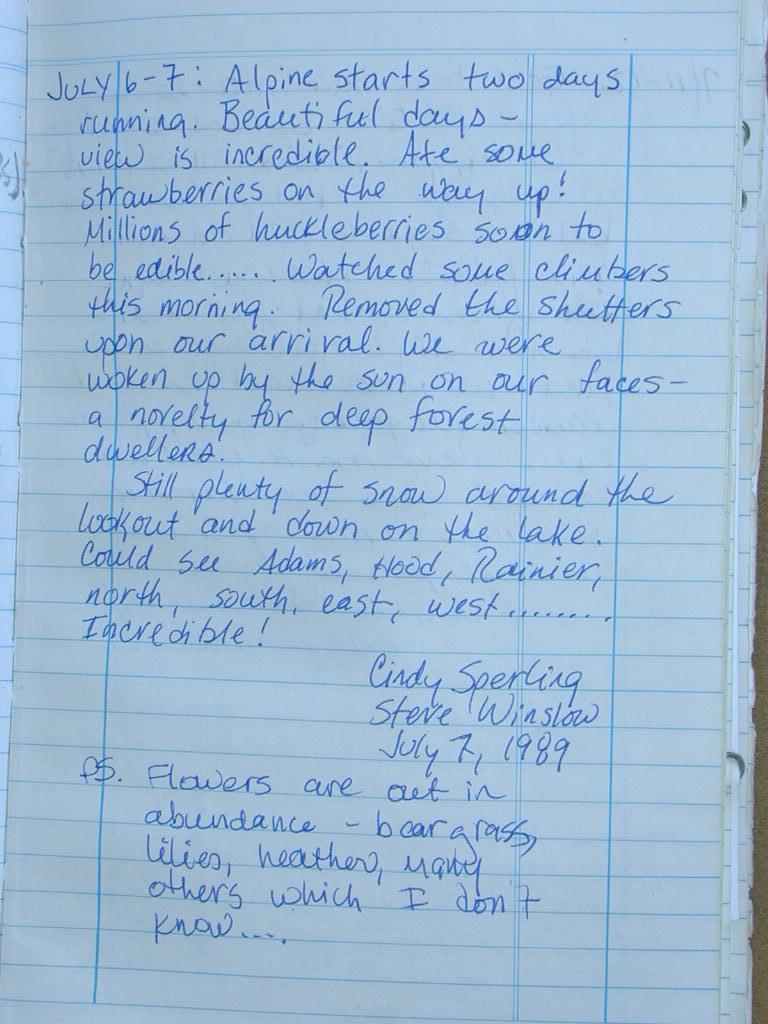 JULY 6-7: Alpine starts two days
running. Beautiful days -
view is incredible. Ate some
strawberries on the way up!
Millions of huckleberries soon to
be edible..... Watched some climbers
this morning. Removed the shutters
upon our arrival. We were
woken up by the sun on our faces -
a novelty for deep forest
dwellers.
Still plenty of snow around the
lookout and down on the lake.
Could see Adams, Hood, Rainier,
north, south, east, west.........
Incredible!
Cindy Sperling
Steve Winslow
July 7, 1989
PS. Flowers are out in
abundance - bear grass,
lilies, heather, many
others which I don't
know....